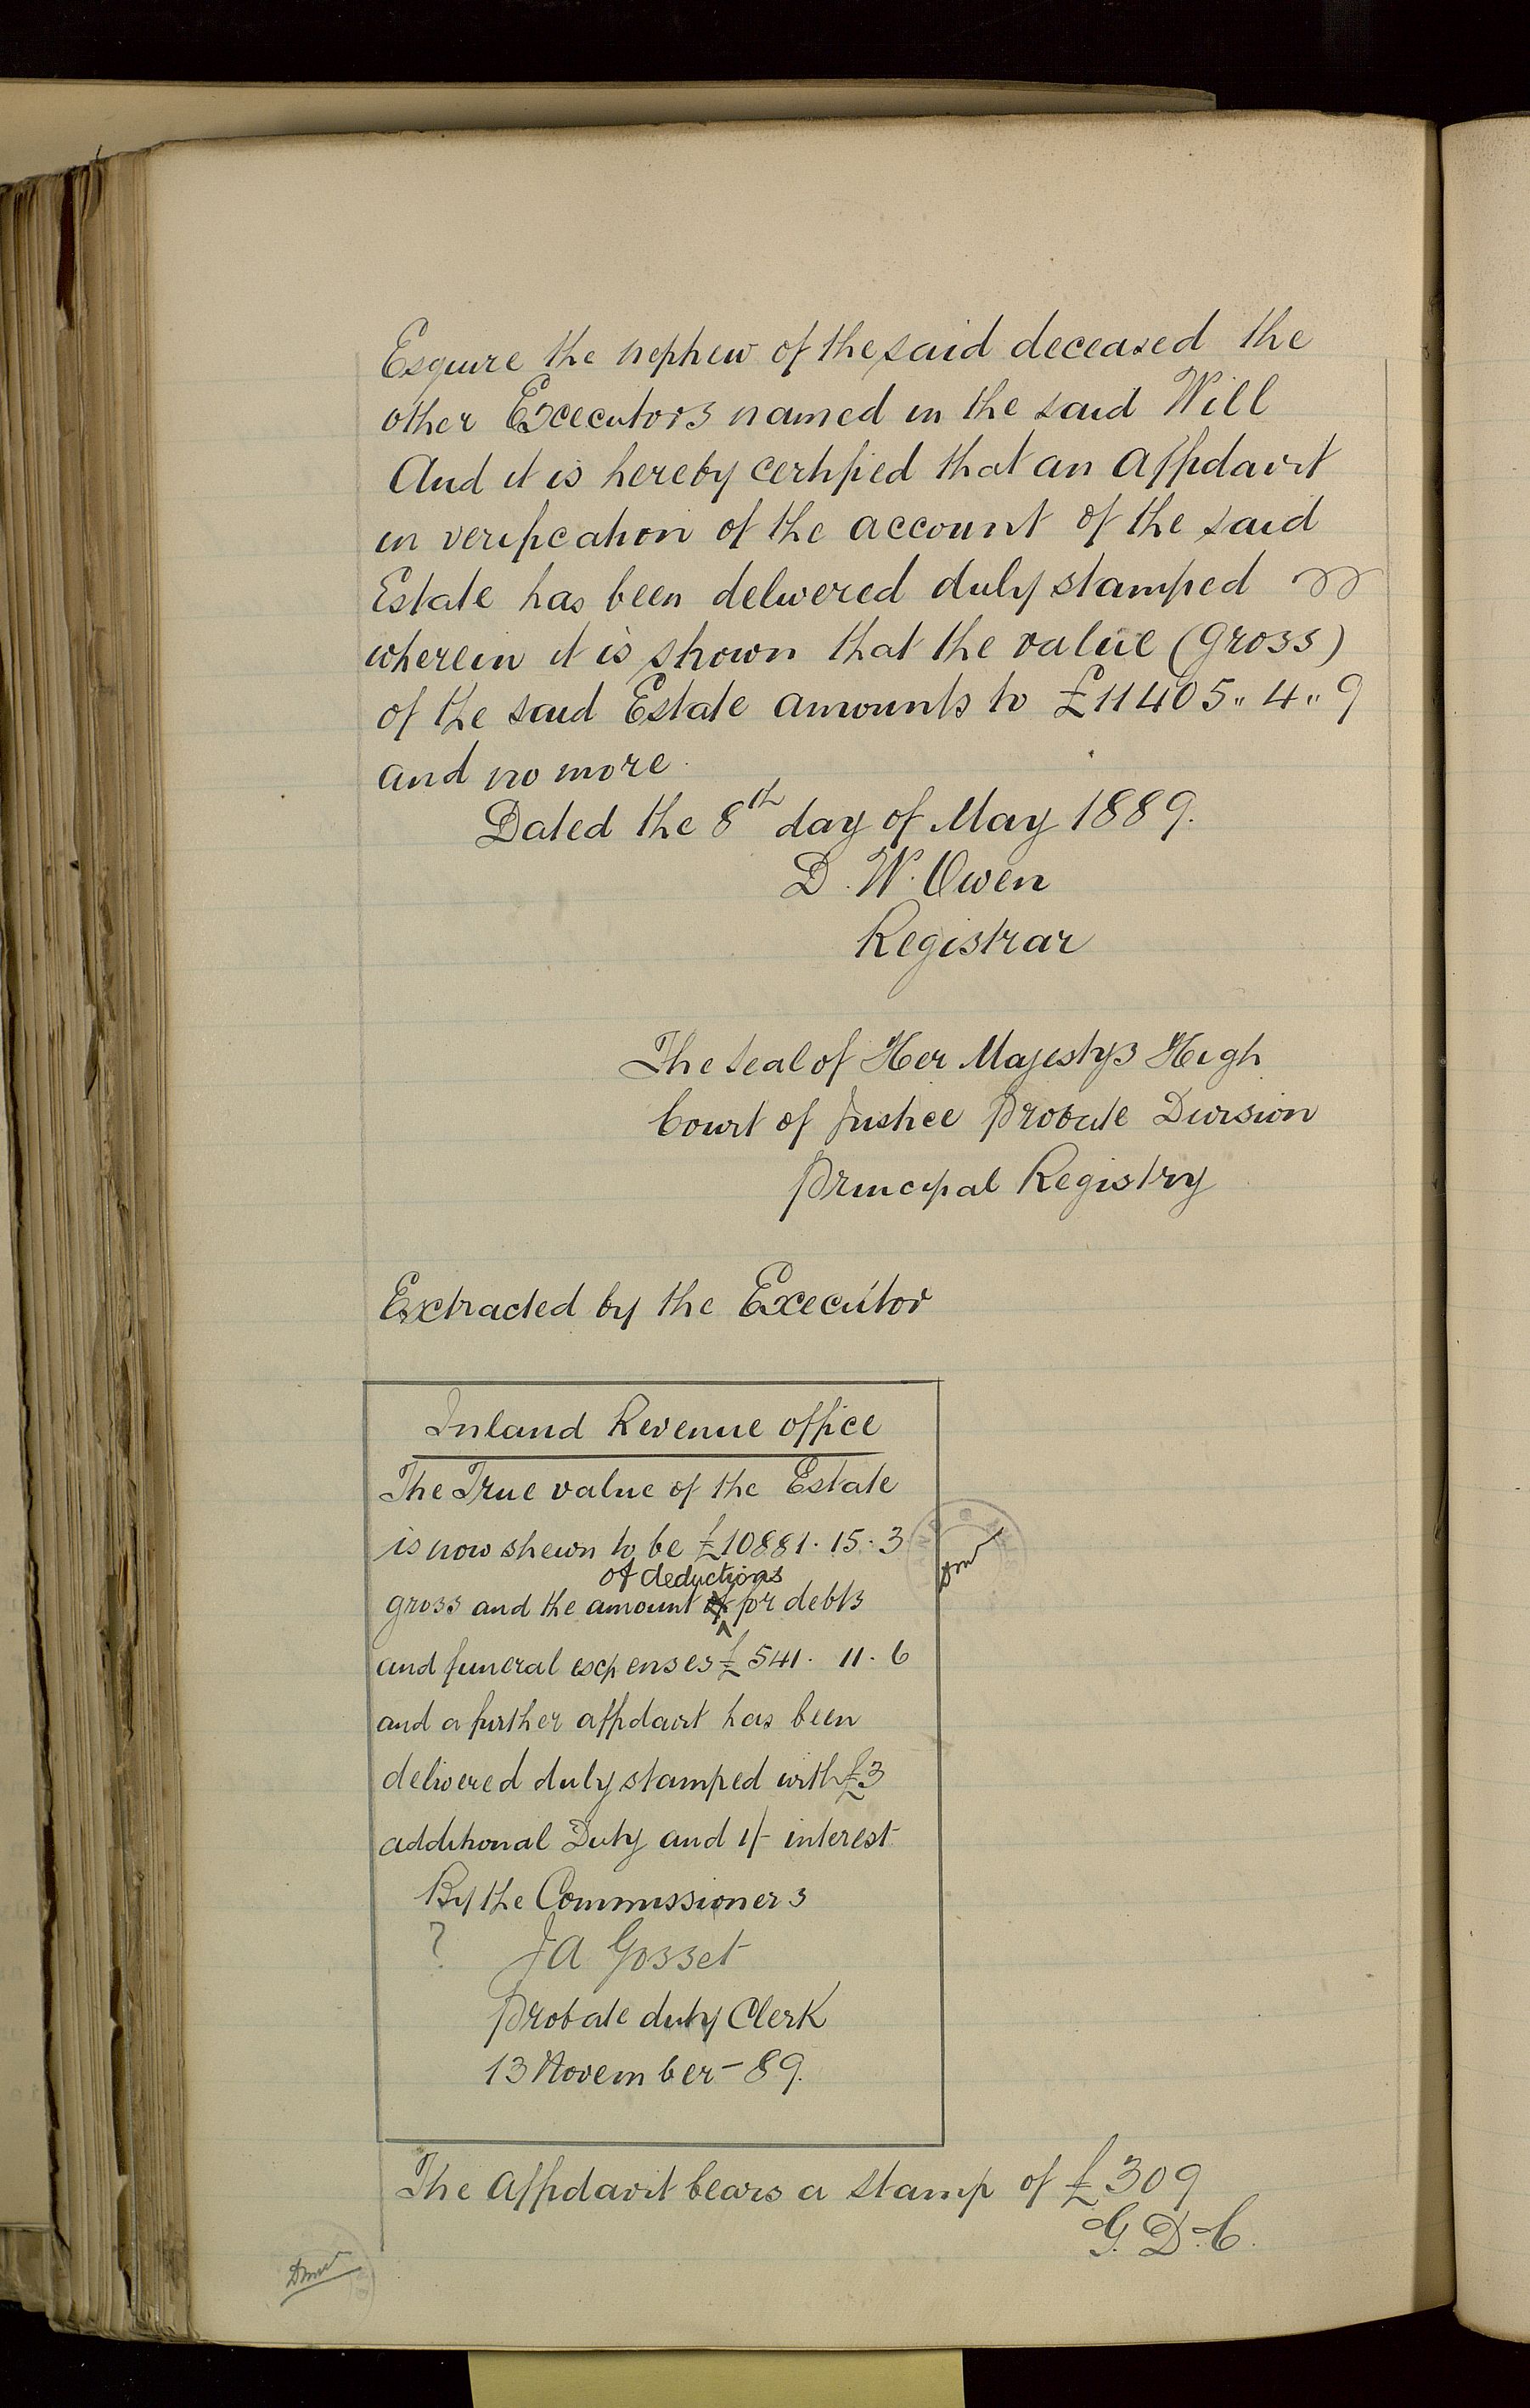 Esquire the nephew of the said deceased the
other Executors named in the said Will
And it is hereby certified that an Affidavit
in verification of the account of the said
Estate has been delivered duly stamped
wherein it is shown that the value (gross)
of the said Estate amounts to £11405 " 4 " 9
and no more.
Dated the 8th day of May 1889.
D. W. Owen
Registrar
The seal of Her Majestys High
Court of Justice Probate Division
Principal Registry
Extracted by the Executor
Inland Revenue office
The True value of the Estate
is now shewn to be £10881. 15. 3
of deductions
gross and the amount for debts
and funeral expenses £541. 11. 6
and a further affidavit has been
delivered duly stamped with £3
additional Duty and 1/- interest
By the Commissioners
? JA Gosset
Probate duty Clerk
13 November - 89.
The Affidavit bears a stamp of £309
G. D. C.